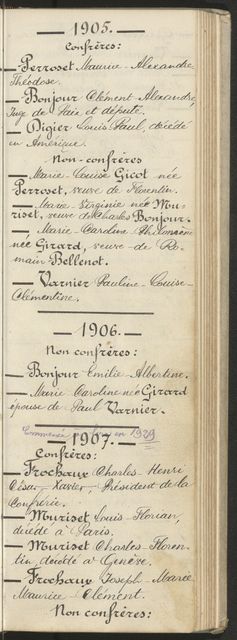 — 1905. —
Confrères:
— Perroset Maurice-Alexandre
Théodose.
— Bonjour Clément-Alexandre,
Juge de Paix et député.
— Digier Louis Paul, décédé
en Amérique.
Non-confrères
— Marie-Louise Gicot née
Perroset, veuve de Florentin.
— Marie-Virginie née Mu-
riset, veuve de Charles Bonjour.
— Marie-Caroline Philomène
née Girard, veuve-de Ro-
main Bellenot.
— Varnier Pauline-Louise-
Clémentine.
— 1906. —
Non confrères:
— Bonjour Emilie-Albertine.
— Marie Caroline née Girard
épouse de Paul Varnier.
Commencé en 1929
— 1907. —
Confrères:
— Frochaux Charles-Henri
César-Xavier, Président de la
Confrérie.
— Muriset Louis-Florian,
décédé à Paris.
— Muriset Charles-Floren-
tin, décédé à Genève.
— Frochaux Joseph-Marie
Maurice-Clément.
Non confrères: